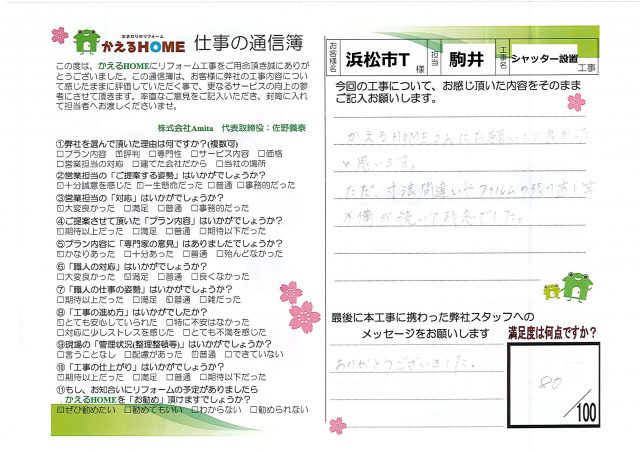 水まわりのリフォーム
かえるHOME 仕事の通信簿
この度は、かえるHOMEにリフォーム工事をご用命頂き誠にありが
とうございました。この通信簿は、お客様に弊社の工事内容につい
て感じたままに評価していただく事で、更なるサービスの向上の参
考にさせて頂きます。率直なご意見をご記入いただき、封筒に入れ
て担当者へお渡しくださいませ。
株式会社Amita 代表取締役：佐野義泰
①弊社を選んで頂いた理由は何ですか?(複数可)
□プラン内容 ☑評判 □専門性 □サービス内容 □価格
□営業担当の対応 □建てた会社だから □当社の場所
②営業担当の「ご提案する姿勢」はいかがでしょうか?
☑十分誠意を感じた □一生懸命だった □普通 □事務的だった
③営業担当の「対応」はいかがでしょうか?
☑大変良かった □満足 □普通 □事務的だった
④ご提案させて頂いた「プラン内容」はいかがでしょうか?
☑期待以上だった □満足 □普通 □期待以下だった
⑤プラン内容に「専門家の意見」はありましたでしょうか?
☑かなりあった □十分あった □普通 □殆んどなかった
⑥「職人の対応」はいかがでしょうか?
□大変良かった ☑満足 □普通 □良くなかった
⑦「職人の仕事の姿勢」はいかがでしょうか?
□期待以上だった □満足 ☑普通 □雑だった
⑧「工事の進め方」はいかがでしたか?
□とても安心していられた □特に不安はなかった
☑対応に少しストレスを感じた □とても不満を感じた
⑨現場の「管理状況(整理整頓等)」はいかがでしょうか?
□言うことなし □配慮があった ☑普通 □できていない
⑩「工事の仕上がり」はいかがでしょうか?
☑期待以上だった □満足 □普通 □期待以下だった
⑪もし、お知合いにリフォームの予定がありましたら
かえるHOMEを「お勧め」頂けますでしょうか?
☑ぜひ勧めたい □勧めてもいい □わからない □勧められない
お客様名 浜松市T 様 担当 駒井 工事名 シャッター設置 工事
今回の工事について、お感じ頂いた内容をそのまま
ご記入お願いします。
かえるHOMEさんにお願いして良かった
と思います。
ただ、寸法間違いやフィルムの残り直し等
不備が続いて残念でした。
最後に本工事に携わった弊社スタッフへの
メッセージをお願いします
ありがとうございました。
満足度は何点ですか?
80
/100